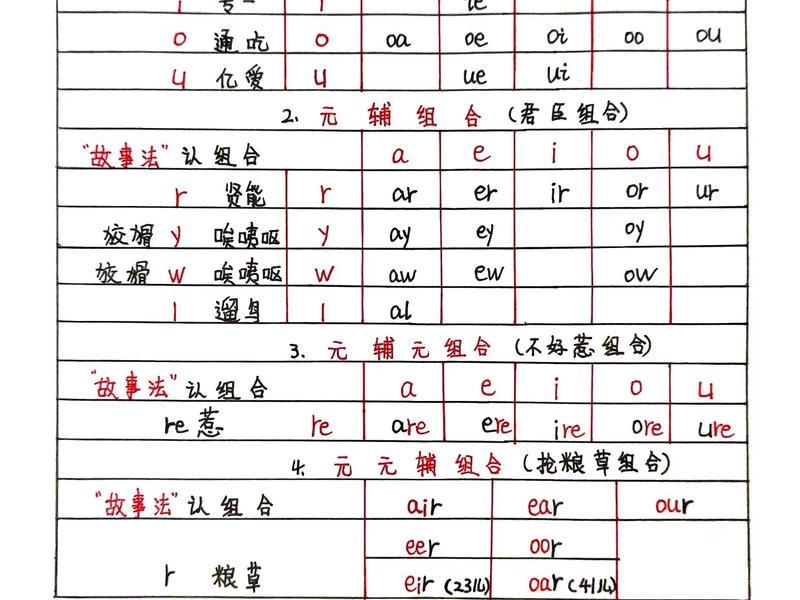 o 通吃 o oa oe oi oo ou
u 亿爱 u ue ui
2. 元 辅 组 合 (君臣组合)
“故事法”认组合 a e i o u
r 贤能 r ar er ir or ur
狡猾 y 唉咦呕 y ay ey oy
狡猾 w 唉咦呕 w aw ew ow
l 遛鸟 l al
3. 元 辅 元 组 合 (不好惹组合)
“故事法”认组合 a e i o u
re 惹 re are ere ire ore ure
4. 元 元 辅 组合 (抢粮草组合)
“故事法”认组合 air ear our
eer oor
r 粮草 eir (23儿) oar (41儿)